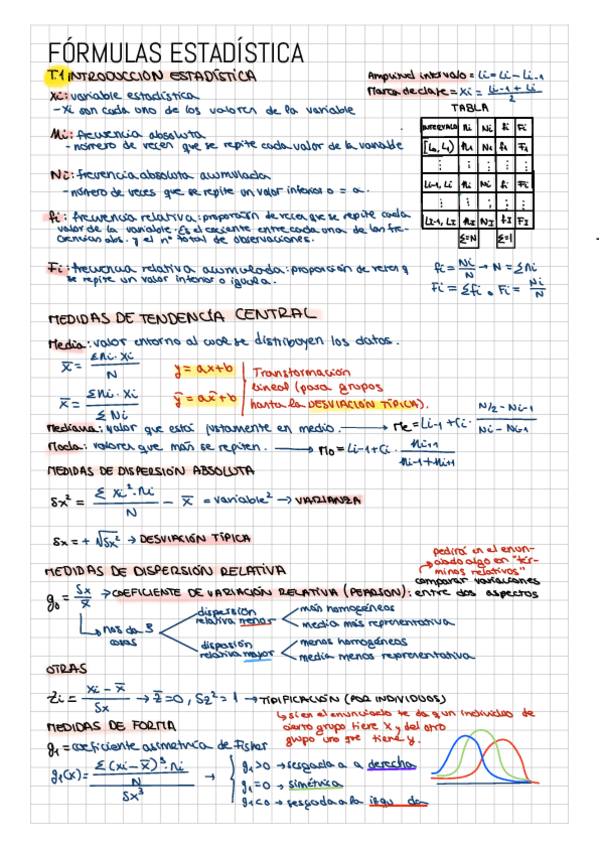 FÓRMULAS ESTADÍSTICA
T.1 INTRODUCCIÓN ESTADÍSTICA
Amplitud intervalo = Ci = Li - Li-1
Xi: variable estadística
Marca de clase = Xi = (Li-1 + Li)/2
- Xi son cada uno de los valores de la variable
TABLA
Mi: frecuencia absoluta
- número de veces que se repite cada valor de la variable
INTERVALO ni Ni fi Fi
[L0, L1) n1 N1 f1 F1
⋮ ⋮ ⋮ ⋮ ⋮
Li-1, Li ni Ni fi Fi
⋮ ⋮ ⋮ ⋮ ⋮
LI-1, LI nI NI fI FI
Σ=N Σ=1
Ni: frecuencia absoluta acumulada
- número de veces que se repite un valor inferior o = a.
fi: frecuencia relativa: proporción de veces que se repite cada
valor de la variable. Es el cociente entre cada una de las fre-
cuencias abs. y el nº total de observaciones.
Fi: frecuencia relativa acumulada: proporción de veces q
se repite un valor inferior o igual a.
fi = Ni/N → N = Σni
Fi = Σfi o Fi = Ni/N
MEDIDAS DE TENDENCIA CENTRAL
Media: valor entorno al cual se distribuyen los datos.
x̄ = Σni · xi / N
y = ax+b
Transformación
lineal (para grupos
x̄ = Σni · xi / Σni
ȳ = ax̄+b
hasta la DESVIACIÓN TÍPICA).
Mediana: valor que está justamente en medio. → Me = Li-1 + Ci · (N/2 - Ni-1)/(Ni - Ni-1)
Moda: valores que más se repiten. → Mo = Li-1 + Ci · ni+1/(ni-1 + ni+1)
MEDIDAS DE DISPERSIÓN ABSOLUTA
Sx² = Σ xi² · ni / N - x̄ = variable² → VARIANZA
Sx = + √Sx² → DESVIACIÓN TÍPICA
pedirá en el enun-
ciado algo en "tér-
minos relativos"
MEDIDAS DE DISPERSIÓN RELATIVA
comparar variaciones
g0 = Sx/x̄ → COEFICIENTE DE VARIACIÓN RELATIVA (PEARSON): entre dos aspectos
nos da 3
cosas
dispersión
relativa menor
más homogéneos
media más representativa
dispersión
relativa mayor
menos homogéneos
media menos representativa
OTRAS
Zi = (xi - x̄)/Sx → z̄ = 0, Sz² = 1 → TIPIFICACIÓN (POR INDIVIDUOS)
↳ si en el enunciado te da q un individuo de
cierto grupo tiene x y del otro
grupo uno que tiene y.
MEDIDAS DE FORMA
g1 = coeficiente asimetría de Fisher
g1(x) = (Σ(xi - x̄)³ · ni / N) / Sx³
g1>0 → sesgada a a derecha
g1=0 → simétrica
g1<0 → sesgada a la izqu da